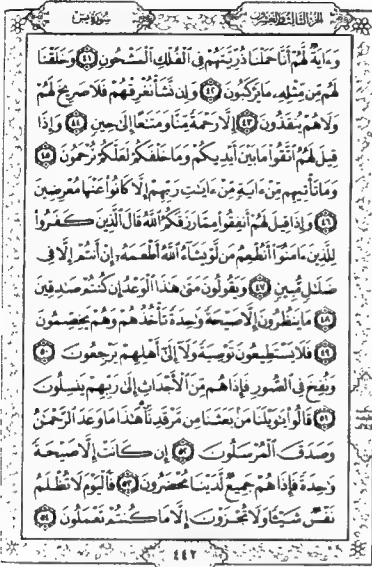 الجزء الثالث والعشرون سورة يس
وَءَايَةٌ لَّهُمْ أَنَّا حَمَلْنَا ذُرِّيَّتَهُمْ فِي الْفُلْكِ الْمَشْحُونِ ٤١ وَخَلَقْنَا
لَهُم مِّن مِّثْلِهِ مَا يَرْكَبُونَ ٤٢ وَإِن نَّشَأْ نُغْرِقْهُمْ فَلَا صَرِيخَ لَهُمْ
وَلَا هُمْ يُنقَذُونَ ٤٣ إِلَّا رَحْمَةً مِّنَّا وَمَتَاعًا إِلَى حِينٍ ٤٤ وَإِذَا
قِيلَ لَهُمُ اتَّقُوا مَا بَيْنَ أَيْدِيكُمْ وَمَا خَلْفَكُمْ لَعَلَّكُمْ تُرْحَمُونَ ٤٥
وَمَا تَأْتِيهِم مِّنْ ءَايَةٍ مِّنْ ءَايَاتِ رَبِّهِمْ إِلَّا كَانُوا عَنْهَا مُعْرِضِينَ
٤٦ وَإِذَا قِيلَ لَهُمْ أَنفِقُوا مِمَّا رَزَقَكُمُ اللَّهُ قَالَ الَّذِينَ كَفَرُوا
لِلَّذِينَ ءَامَنُوا أَنُطْعِمُ مَن لَّوْ يَشَاءُ اللَّهُ أَطْعَمَهُ إِنْ أَنتُمْ إِلَّا فِي
ضَلَالٍ مُّبِينٍ ٤٧ وَيَقُولُونَ مَتَى هَذَا الْوَعْدُ إِن كُنتُمْ صَادِقِينَ
٤٨ مَا يَنظُرُونَ إِلَّا صَيْحَةً وَاحِدَةً تَأْخُذُهُمْ وَهُمْ يَخِصِّمُونَ
٤٩ فَلَا يَسْتَطِيعُونَ تَوْصِيَةً وَلَا إِلَى أَهْلِهِمْ يَرْجِعُونَ ٥٠
وَنُفِخَ فِي الصُّورِ فَإِذَا هُم مِّنَ الْأَجْدَاثِ إِلَى رَبِّهِمْ يَنسِلُونَ
٥١ قَالُوا يَاوَيْلَنَا مَن بَعَثَنَا مِن مَّرْقَدِنَا هَذَا مَا وَعَدَ الرَّحْمَنُ
وَصَدَقَ الْمُرْسَلُونَ ٥٢ إِن كَانَتْ إِلَّا صَيْحَةً
وَاحِدَةً فَإِذَا هُمْ جَمِيعٌ لَّدَيْنَا مُحْضَرُونَ ٥٣ فَالْيَوْمَ لَا تُظْلَمُ
نَفْسٌ شَيْئًا وَلَا تُجْزَوْنَ إِلَّا مَا كُنتُمْ تَعْمَلُونَ ٥٤
٤٤٢